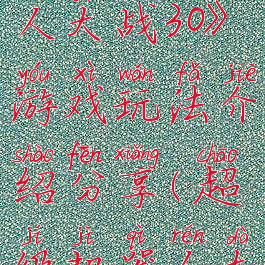 人大战30》
yóu xì wán fǎ jiè
游戏玩法介
shào fēn xiǎng chāo
绍分享(超
jí jī qì rén dà
级机器人大